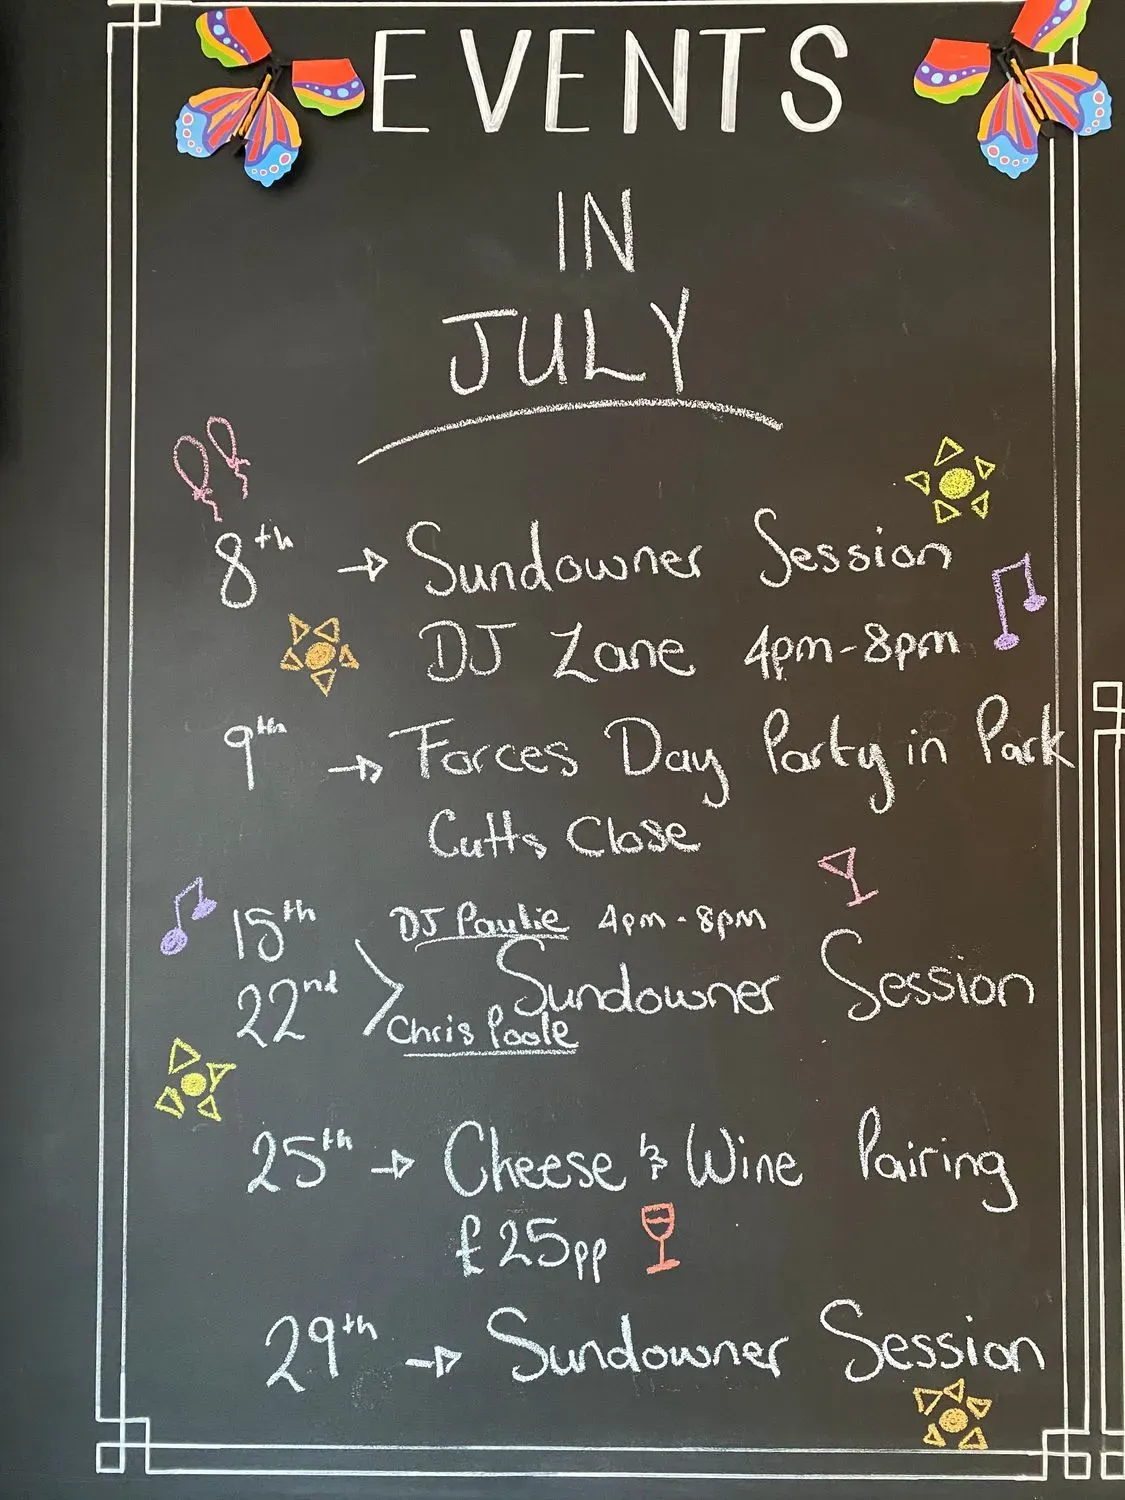 EVENTS
IN
JULY
8th → Sundowner Session
DJ Zane 4pm-8pm
9th → Forces Day Party in Park
Cutts Close
15th DJ Paulie 4pm-8pm
Sundowner Session
22nd Chris Poole
25th → Cheese & Wine Pairing
£25pp
29th → Sundowner Session